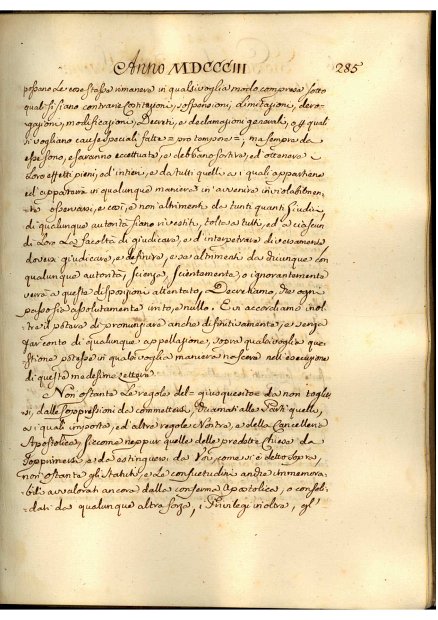 Anno MDCCCIII 285
possano le cose stesse rimanere in qualsivoglia modo comprese sotto
qualsisiano contrarie costituzioni, sospensioni, limitazioni, dero-
gazioni, modificazioni, Decreti, e declamazioni generali, o quali
si vogliano cause speciali fatte = pro tempore =; ma sempre da
esse sono, e saranno eccettuate, e debbano sortire, ed ottenere i
Loro effetti pieni, ed intieri, e da tutti quelli a i quali appartiene
ed apparterrà in qualunque maniera in avvenire inviolabilmen-
te osservarsi, e così, e non altrimenti da tutti quanti Giudici
di qualunque autorità siano rivestiti, tolta a tutti, ed a ciascun
di Loro la facoltà di giudicare, e d'interpretare diversamente
doversi giudicare, e definire, e se altrimenti da chiunque con
qualunque autorità, scienza, scientemente, o ignorantemente
verrà a queste disposizioni attentato, Decretiamo, che ogni
passo sia assolutamente irrito, e nullo. E vi accordiamo inol-
tre il potere di pronunziare anche definitivamente, e senza
far conto di qualunque appellazione, sopra qualsivoglia que-
stione stessa in qualsivoglia maniera nascera nell'esecuzione
di queste medesime Lettere
Non ostante Le regole del = gius quesitoe da non toglier
si, dalle Soppressioni da commettersi, chiamati alle Parti quelle,
a i quali importa, ed altre regole Nostre, e della Cancelleria
Apostolica, siccome neppur quelle delle predette Chiese da
sopprimersi, e da estinguersi da Voi, come si è detto sopra,
non ostante gli Statuti, e Le consuetudini anche immemora-
bili avvalorati ancora dalla conferma Apostolica, o consoli-
dati da qualunque altra forza, i Privilegi inoltre, gl'